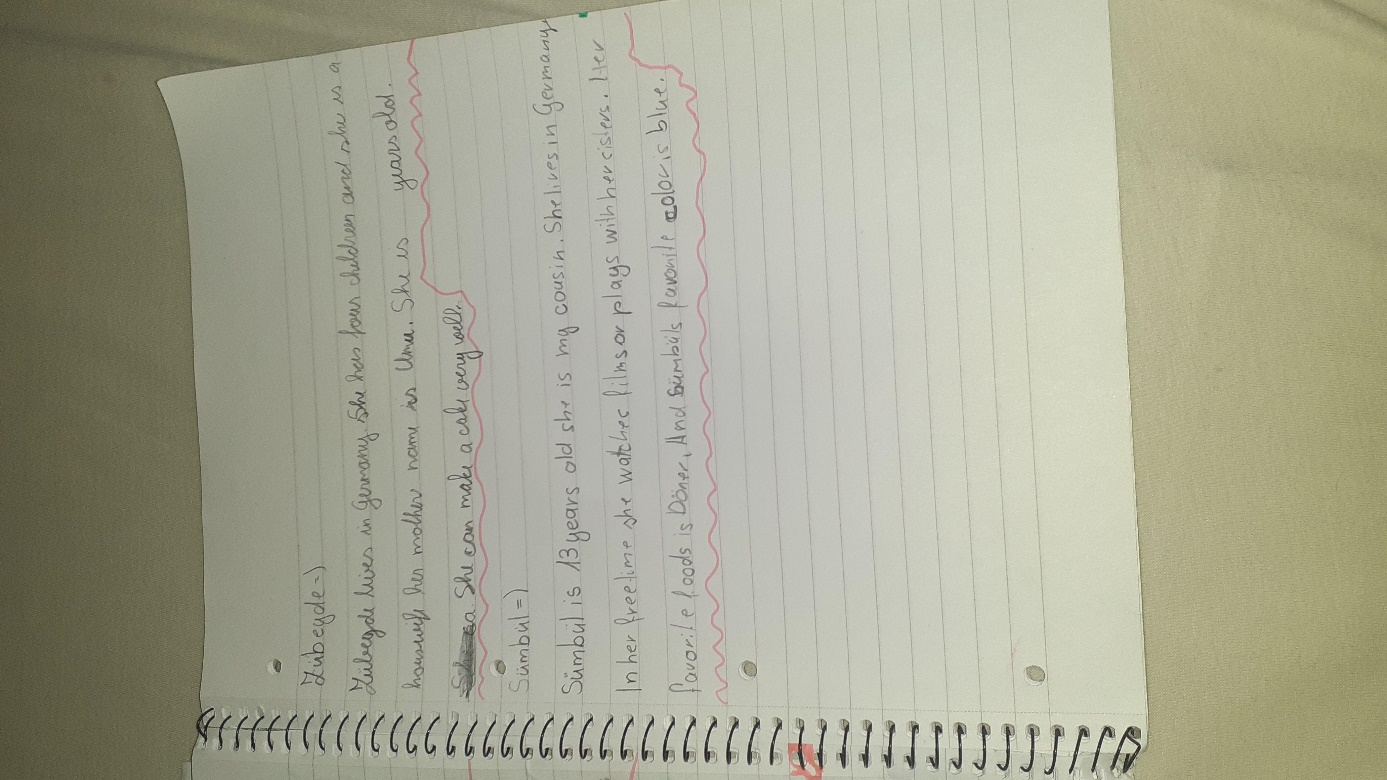 Zübeyde=)
Zübeyde lives in Germany. She has four children and she is a
housewife her mother name is Umu. She is years old.
She can make a cake very well.
Sümbül=)
Sümbül is 13 years old she is my cousin. She lives in Germany
In her freetime she watches films or plays with her cisters. Her
favorite foods is Döner. And Sümbüls favorite color is blue.